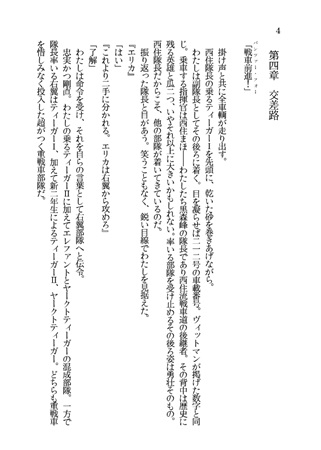 4
第四章　交差路
「戦車前進！」
パンツァー・フォー
掛け声と共に全車輌が走り出す。
西住隊長の乗るティーガーⅠを先頭に、乾いた砂を巻きあげながら。
わたしは副隊長としてその後ろに着く。目を凝らせば二一二号の車載番号。ヴィットマンが掲げた数字と同
じ。乗車する指揮官は西住まほ――わたしたち黒森峰の隊長であり西住流戦車道の後継者。その背中は歴史に
残る英雄と瓜二つ、いやそれ以上に大きいかもしれない。率いる部隊を受け止めるその後ろ姿は勇壮そのもの。
西住隊長だからこそ、他の部隊が着いてきているのだ。
振り返った隊長と目があう。笑うこともなく、鋭い目線でわたしを見据えた。
『エリカ』
「はい」
『これより二手に分かれる。エリカは右翼から攻めろ』
「了解」
わたしは命令を受け、それを自らの言葉として右翼部隊へと伝令。
忠実かつ剛直。わたしの乗るティーガーⅡに加えてエレファントとヤークトティーガーの混成部隊。一方で
隊長率いる右翼はティーガーⅠ、加えて新二年生によるティーガーⅡ、ヤークトティーガー。どちらも重戦車
を惜しみなく投入した超がつく重戦車部隊だ。